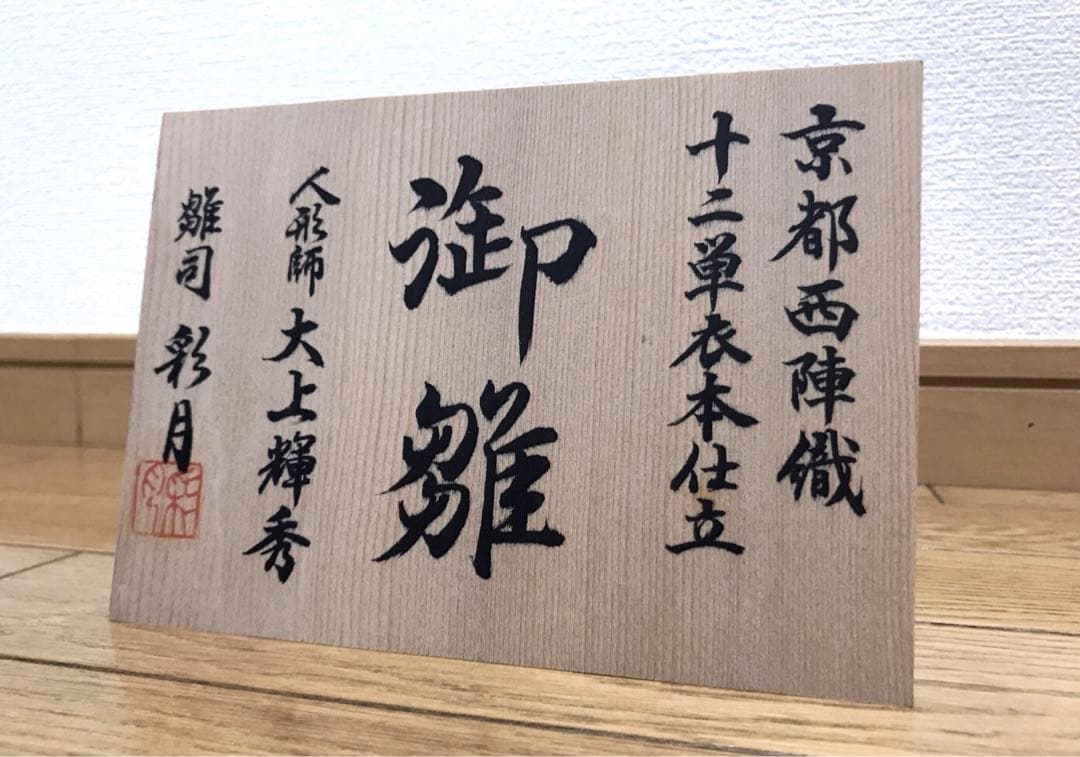 京都西陣織
十二単衣本仕立
御雛
人形師 大上輝秀
雛司 彩月